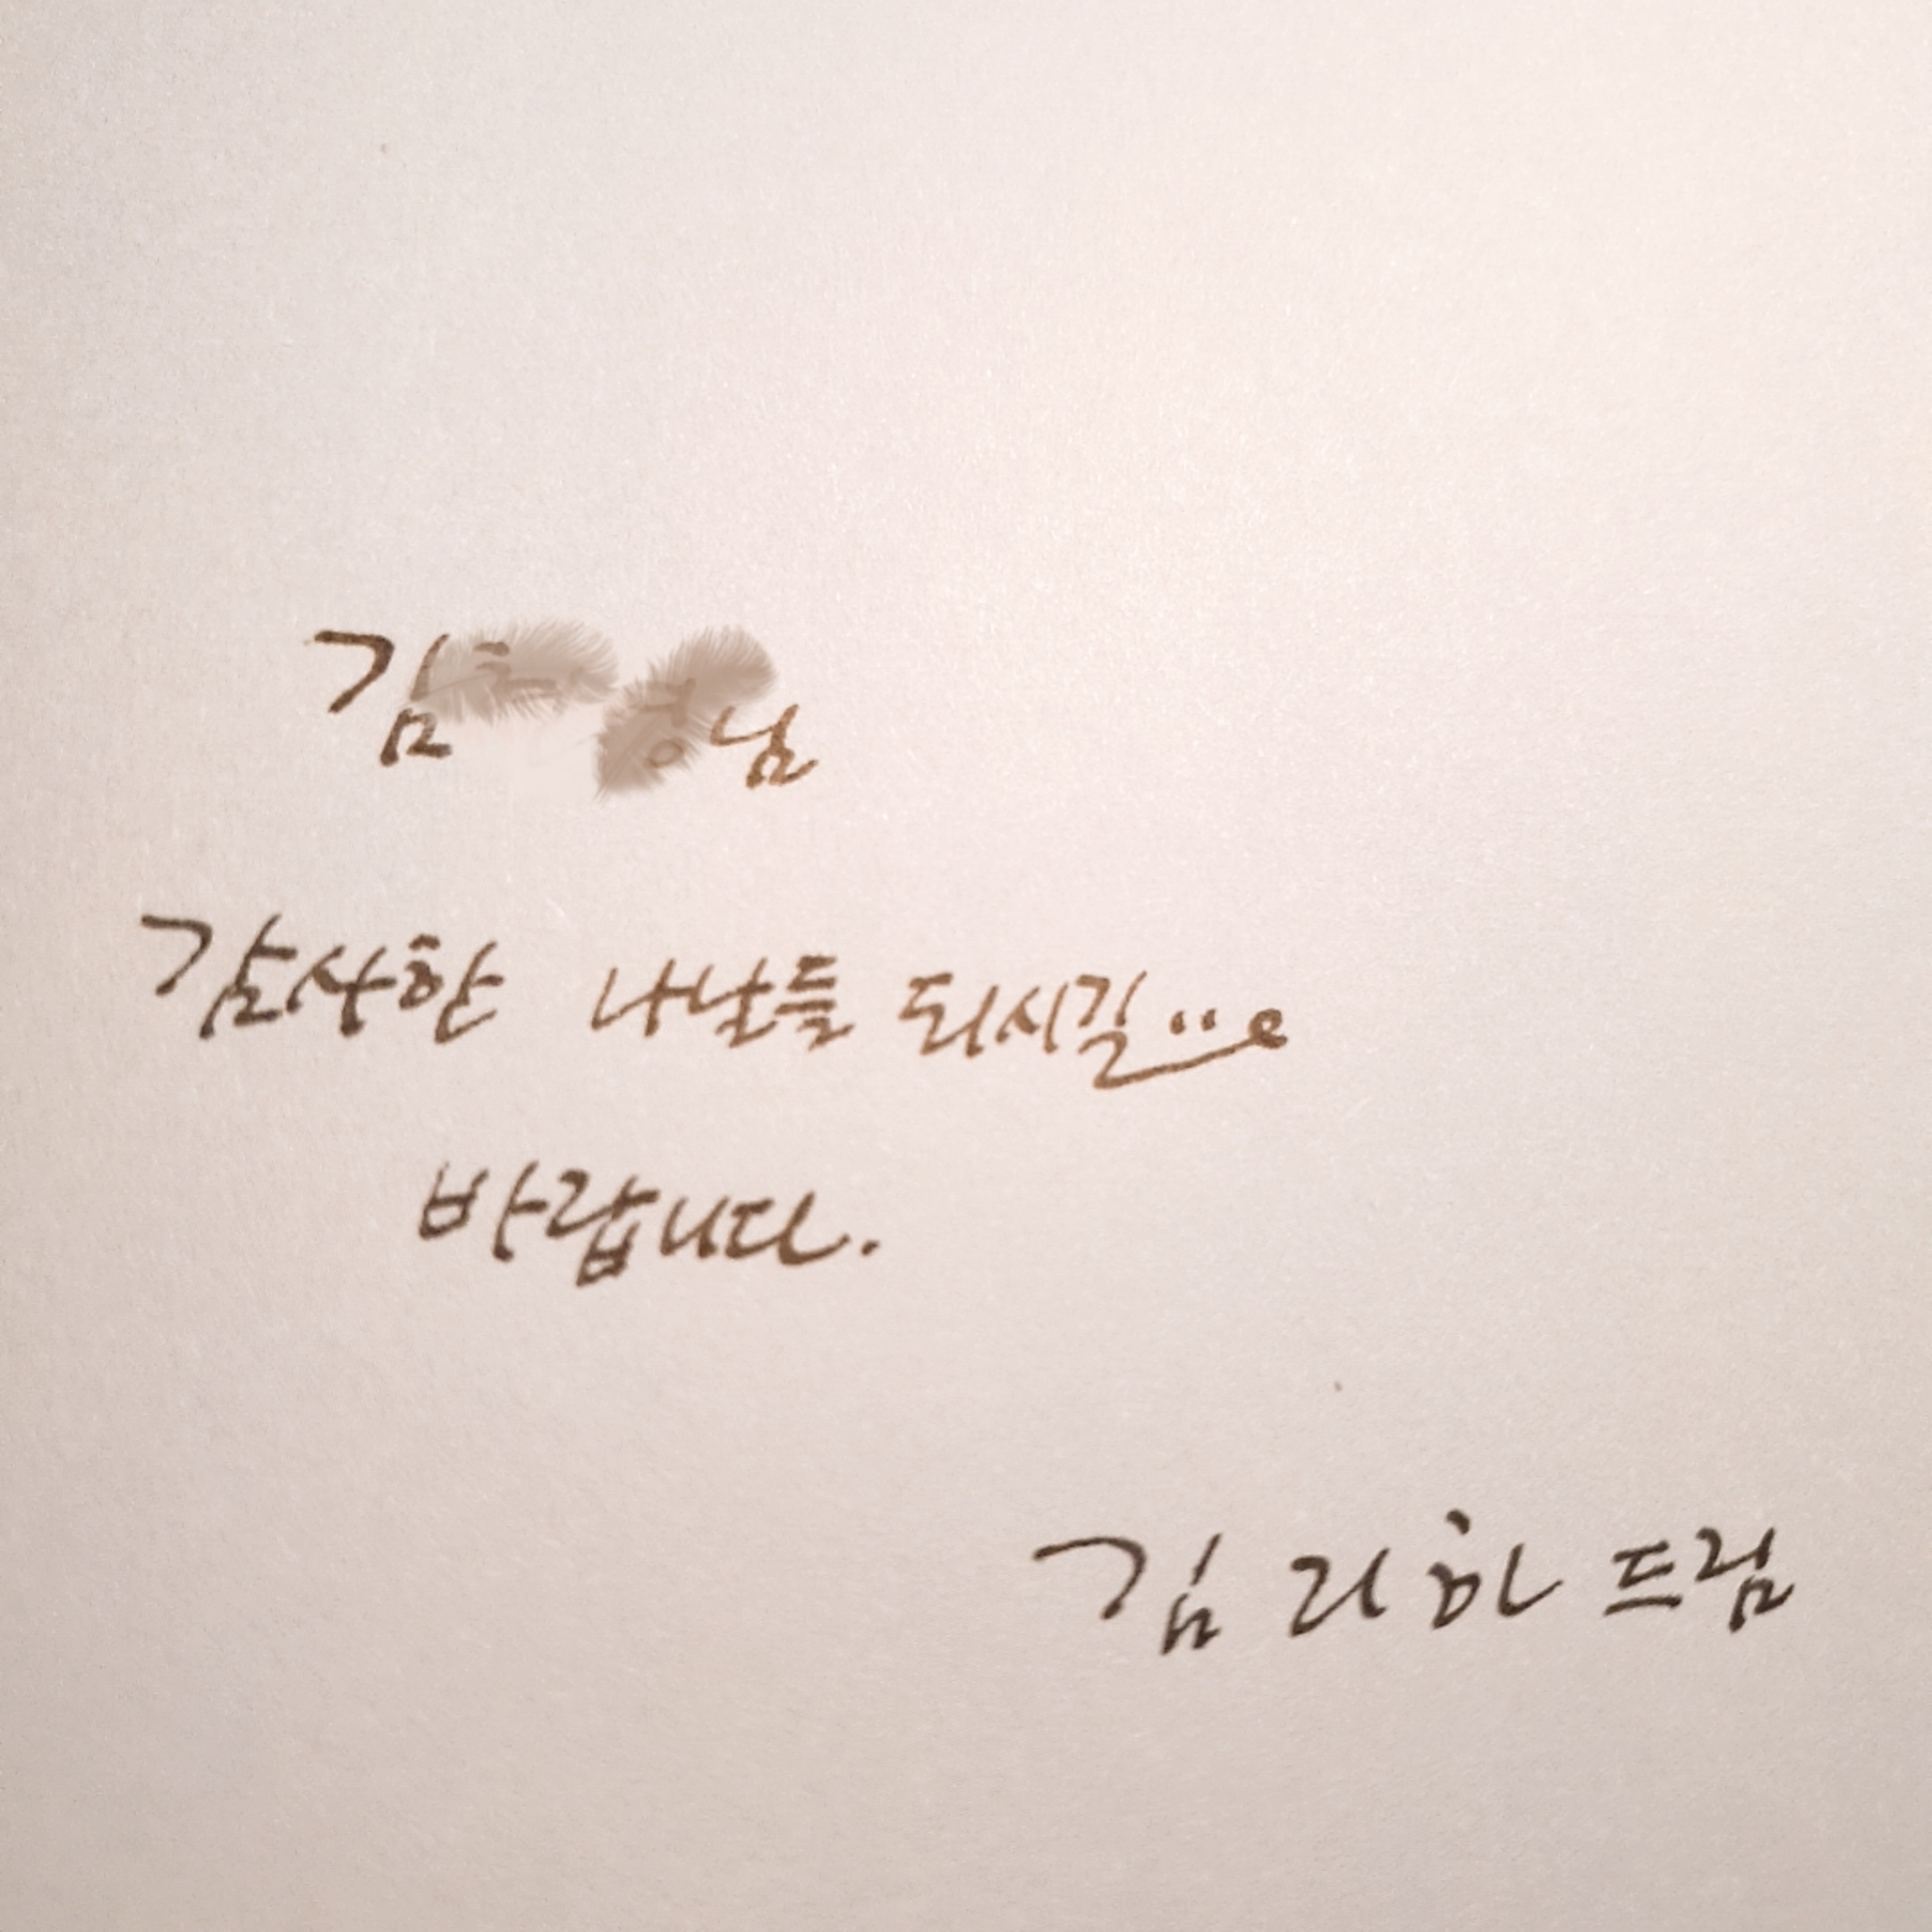 김 님
감사한 나날들 되시길...
바랍니다.
김리하 드림